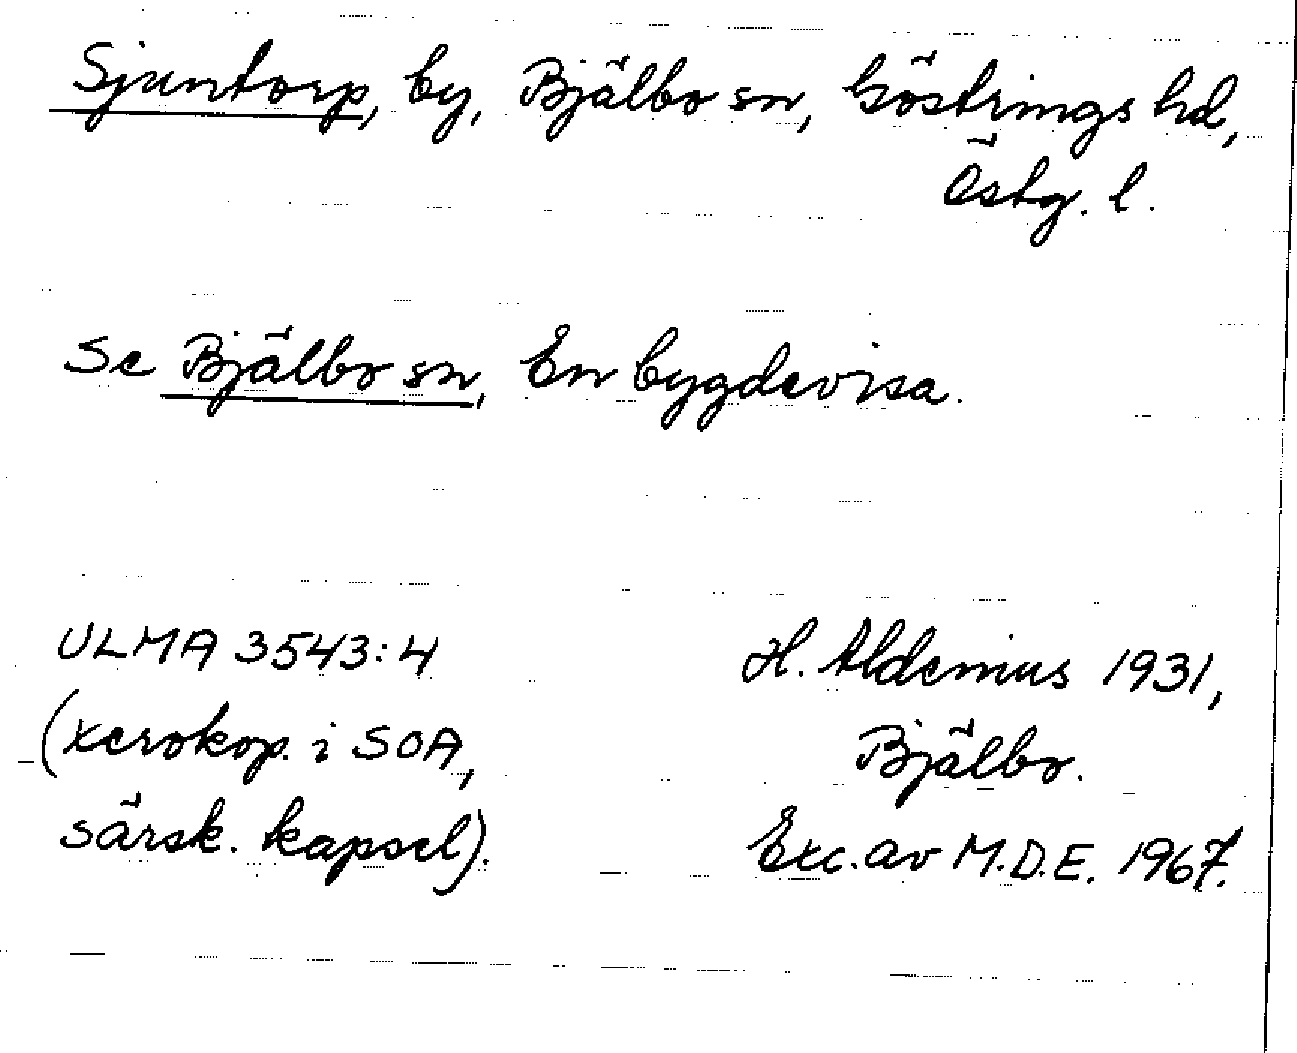 Sjuntorp, by, Bjälbo sn, Göstrings hd,
Östg. l.
Se Bjälbo sn, En bygdevisa.
ULMA 3543:4
(xerokop. i SOA,
särsk. kapsel).
H. Aldemius 1931,
Bjälbo.
Exc. av M.D.E. 1967.